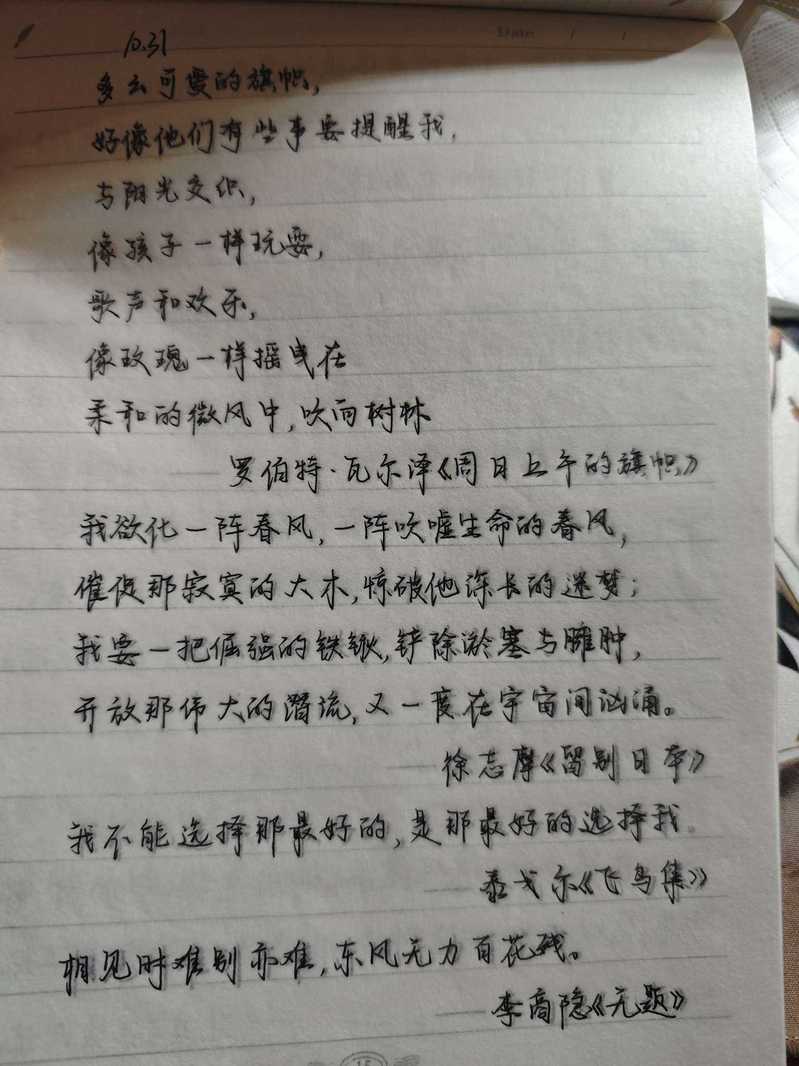 Date / /
10.31
多么可爱的旗帜，
好像他们有些事要提醒我，
与阳光交织，
像孩子一样玩耍，
歌声和欢乐，
像玫瑰一样摇曳在
柔和的微风中，吹向树林
——罗伯特·瓦尔泽《周日上午的旗帜》
我欲化一阵春风，一阵吹嘘生命的春风，
催促那寂寞的大木，惊破他深长的迷梦；
我要一把倔强的铁锹，铲除淤塞与臃肿，
开放那伟大的潜流，又一度在宇宙间汹涌。
——徐志摩《留别日本》
我不能选择那最好的，是那最好的选择我。
——泰戈尔《飞鸟集》
相见时难别亦难，东风无力百花残。
——李商隐《无题》
15